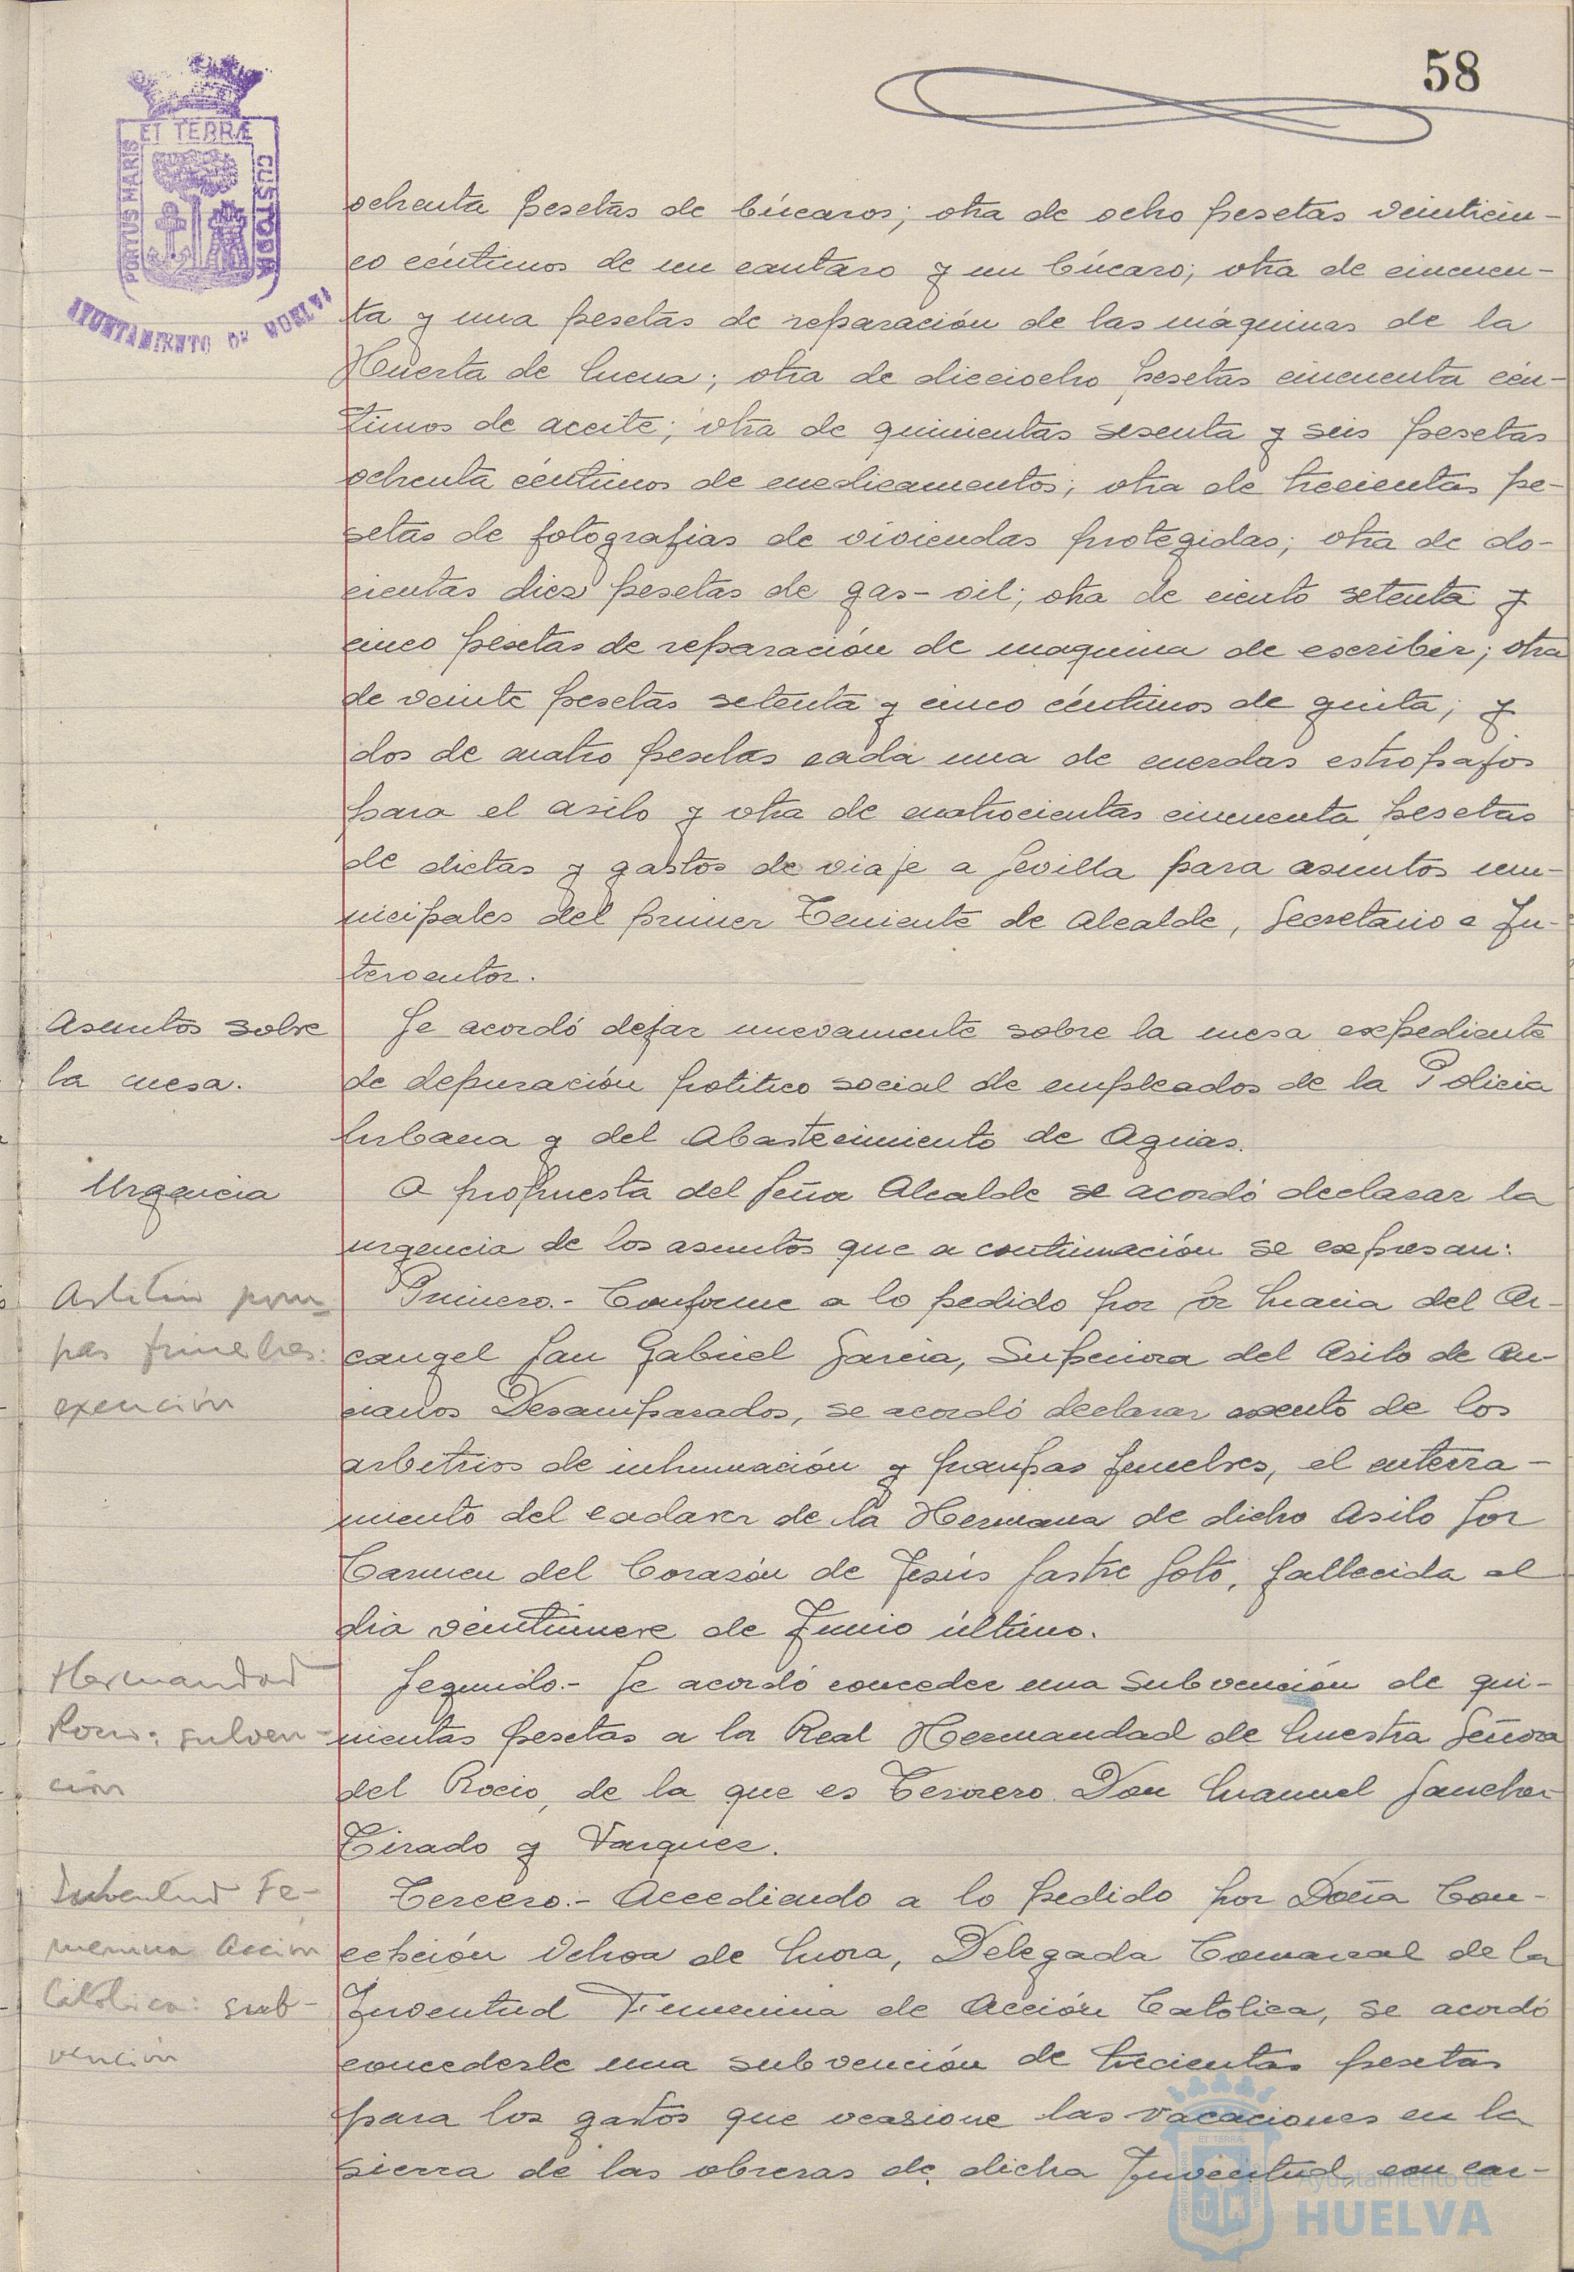 58
ET TERRÆ
PORTUS MARIS
CUSTODIA
AYUNTAMIENTO DE HUELVA
ochenta pesetas de búcaros; otra de ocho pesetas veinticin-
co céntimos de un cantaro y un búcaro; otra de cincuen-
ta y una pesetas de reparación de las máquinas de la
Huerta de Mena; otra de dieciocho pesetas cincuenta cén-
timos de aceite; otra de quinientas sesenta y seis pesetas
ochenta céntimos de medicamentos; otra de trecientas pe-
setas de fotografias de viviendas protegidas; otra de do-
cientas diez pesetas de gas-oil; otra de ciento setenta y
cinco pesetas de reparación de maquina de escribir; otra
de veinte pesetas setenta y cinco céntimos de guita; y
dos de cuatro pesetas cada una de cuerdas estropajos
para el asilo y otra de cuatrocientas cincuenta pesetas
de dietas y gastos de viaje a Sevilla para asuntos mu-
nicipales del primer Teniente de Alcalde, Secretario e In-
terventor.
Asuntos sobre
la mesa.
Se acordó dejar nuevamente sobre la mesa expediente
de depuración politico social de empleados de la Policia
Urbana y del Abastecimiento de Aguas.
Urgencia
A propuesta del Señor Alcalde se acordó declarar la
urgencia de los asuntos que a continuación se expresan:
Arbitrio pom-
pas funebres:
exención
Primero.- Conforme a lo pedido por Sor Maria del Ar-
cangel San Gabriel Garcia, Superiora del Asilo de An-
cianos Desamparados, se acordó declarar exento de los
arbitrios de inhumación y pompas funebres, el enterra-
miento del cadaver de la Hermana de dicho Asilo Sor
Carmen del Corazón de Jesús Sastre Soto, fallecida el
dia veintinueve de Junio último.
Hermandad
Rocio: subven-
ción
Segundo.- Se acordó conceder una subvención de qui-
nientas pesetas a la Real Hermandad de Nuestra Señora
del Rocio, de la que es Tesorero Don Manuel Sanchez
Tirado y Vazquez.
Juventud Fe-
menina Acción
Católica: sub-
vención
Tercero.- Accediendo a lo pedido por Doña Con-
cepción Ochoa de Mora, Delegada Comarcal de la
Juventud Femenina de Acción Catolica, se acordó
concederle una subvención de trecientas pesetas
para los gastos que ocasione las vacaciones en la
sierra de las obreras de dicha Juventud, con car-
Ayuntamiento de
HUELVA